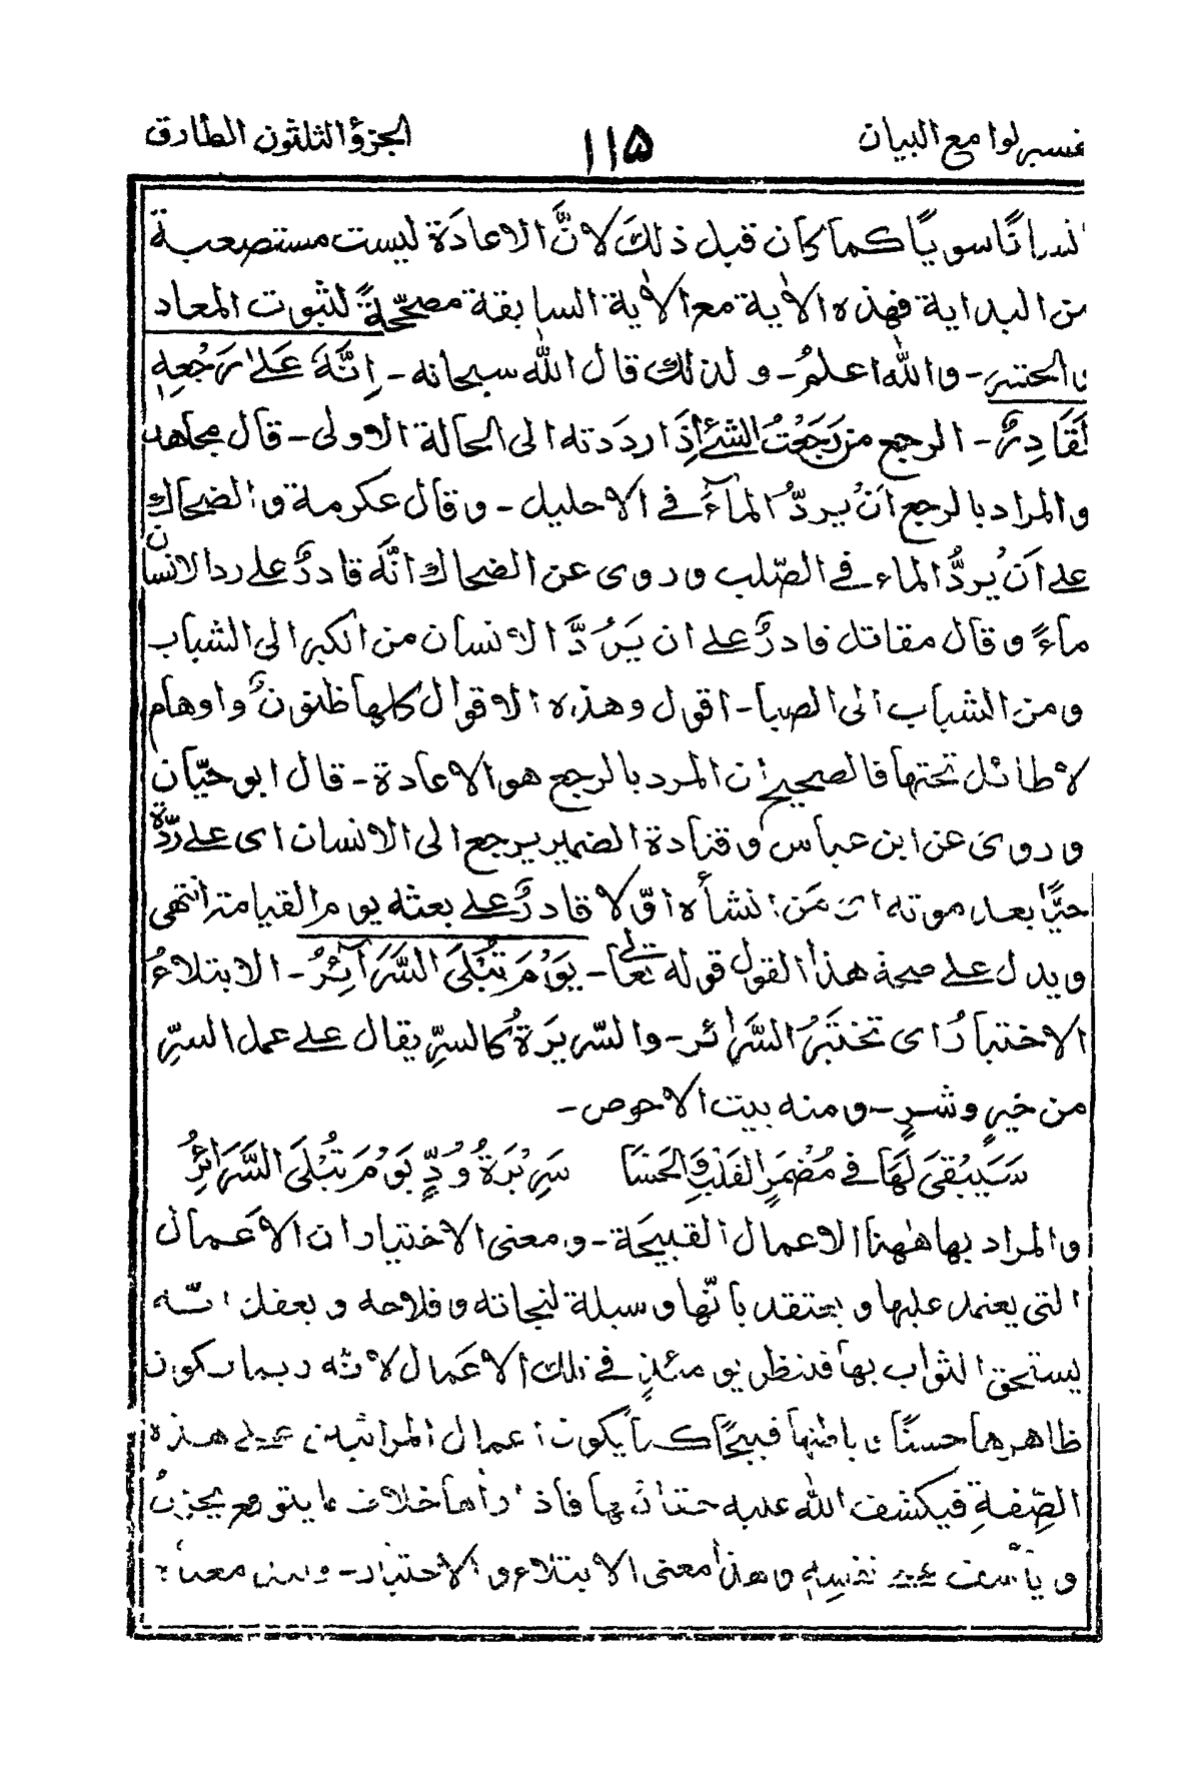 تفسير لوامع البيان ١١٥ الجزؤ الثلثون الطارق
انسانًا سويًا كما كان قبل ذلكَ لانَّ الاعادَة ليست مستصعبة
من البداية فهذه الاٰية مع الاٰية السابقة مصحّحةً لثبوت المعاد
والحشر - والله اعلمُ - ولذلك قال الله سبحانه - اِنَّهٗ عَلٰى رَجْعِهٖ
لَقَادِرٌ - الرجع من رَجَعْتُ الشئَ اِذَا رددته الى الحالة الاولى - قال مجاهد
والمراد بالرجع اَنْ يردَّ المآءَ فى الاحليل - وقال عكرمة والضحاك
على اَنْ يُردَّ الماء فى الصّلب وروى عن الضحاك انَّهٗ قادرٌ على رد الانسان
ماءً وقال مقاتل قادرٌ على ان يَرُدَّ الانسان من الكبر الى الشباب
ومن الشباب الى الصبا - اقول وهذه الاقوال كلها ظنونٌ واوهام
لاطائل تحتها فالصحيح ان المرد بالرجع هو الاعادة - قال ابوحيّان
وروى عن ابن عباس وقتادة الضمير يرجع الى الانسان اى على ردّهٖ
حيًّا بعد موته اى مَن انشأه اوّلا قادرٌ على بعثه يوم القيامة انتهى
ويدل على صحة هذا القول قوله تعالى - يَوْمَ تُبْلَى السَّرَآئِرُ - الابتلاءُ
الاختبارُ اى تختبَرُ السَّرائر - والسّريرَةُ كالسرِّ يقال على عمل السرِّ
من خيرٍ وشرٍ - ومنه بيت الاحوص -
سَيَبْقَى لَهَا فى مُضْمَرِ القَلْبِ وَالحَشَا سَرِيْرَةُ وُدٍّ يَوْمَ تُبْلَى السَّرَائِرُ
والمراد بها ههنا الاعمال القبيحة - ومعنى الاختيار ان الاَعمال
التى يعتمد عليها ويعتقد بانّها وسيلة لنجاته وفلاحه و انّه
يستحق الثواب بها فننظر يومئذٍ فى ذلك الاَعمال لانّه ربما يكون
ظاهرها حسنًا وباطنها قبيحًا كما يكون اعمال المرائين على هذه
الصِّفةِ فيكشف الله عليه بها فاذا رأها خلاف ما يتوقع يحزنُ
ويأسف على نفسهٖ وهذا معنى الابتلاء والاختبار - وليس معناه